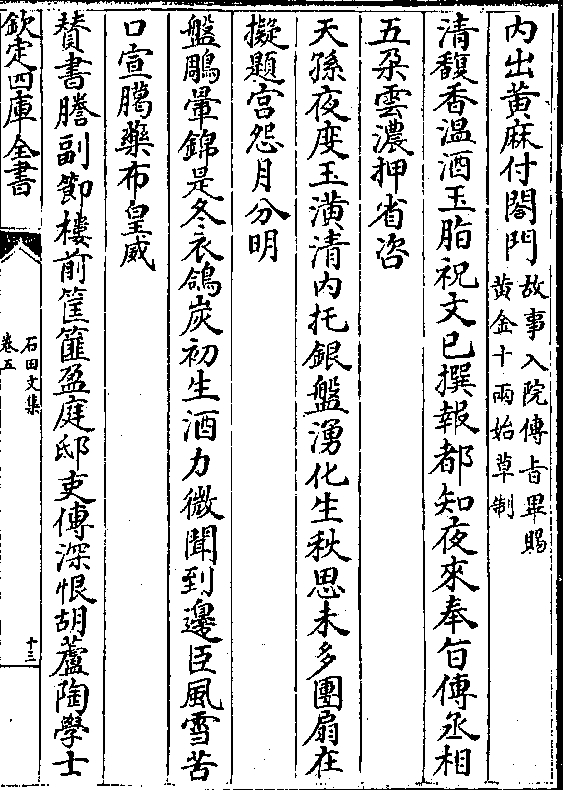 内出黄麻付閤門故事入院傳旨畢賜
黄金十兩始草制
清馥香温酒玉脂祝文已撰報都知夜來奉旨傳丞相
五朶雲濃押省咨
天孫夜度玉潢清内托銀盤湧化生秋思未多團扇在
擬題宫怨月分明
盤鵰暈錦是冬衣鴿炭初生酒力微聞到邊臣風雪苦
口宣臈藥布皇威
賛書謄副節樓前筐篚盈庭邸吏傳深恨胡蘆陶學士
欽定四庫全書
石田文集
卷五
十三